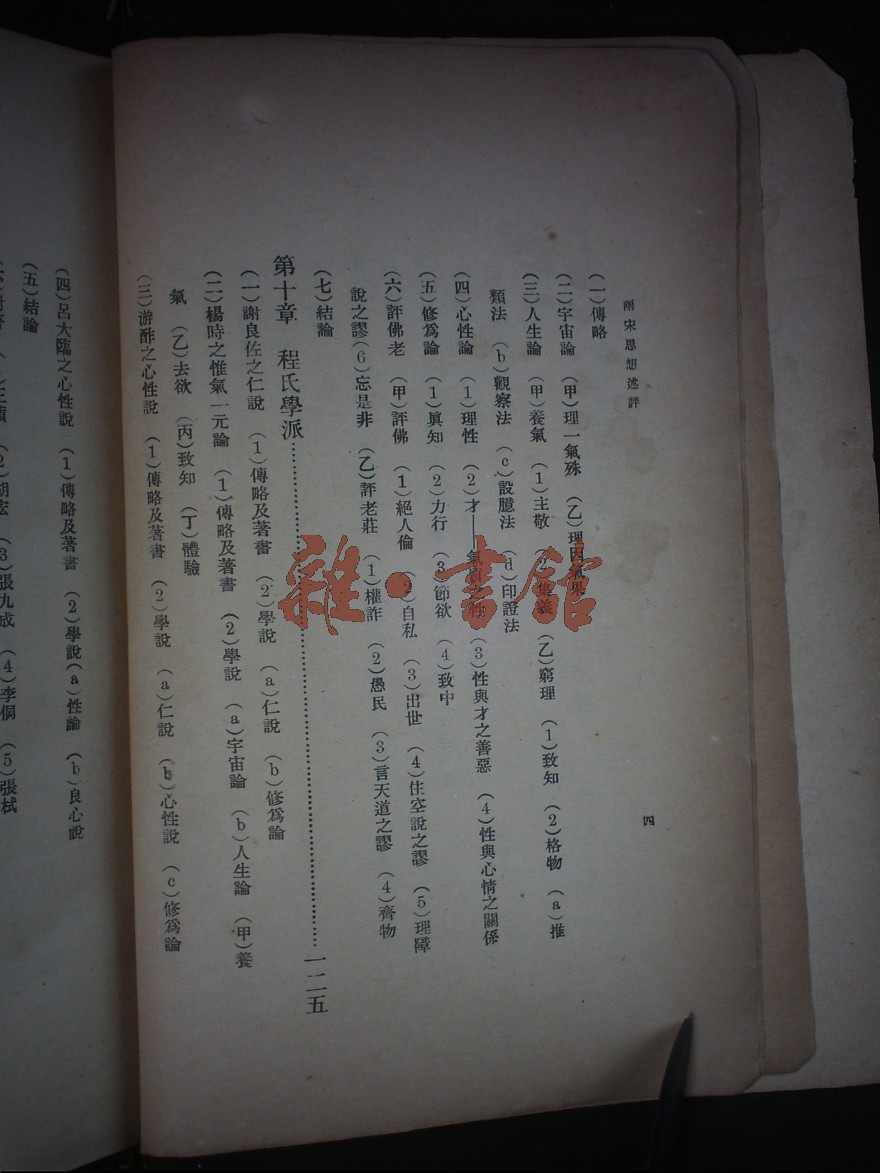 兩宋思想述評
四
(一)傳略
(二)宇宙論 (甲)理一氣殊 (乙)理因氣果
(三)人生論 (甲)養氣 (1)主敬 (2)集義 (乙)窮理 (1)致知 (2)格物 (a)推
類法 (b)觀察法 (c)設臆法 (d)印證法
(四)心性論 (1)理性 (2)才——氣質之性 (3)性與才之善惡 (4)性與心情之關係
(五)修爲論 (1)眞知 (2)力行 (3)節欲 (4)致中
(六)評佛老 (甲)評佛 (1)絕人倫 (2)自私 (3)出世 (4)住空說之謬 (5)理障
說之謬(6)忘是非 (乙)評老莊 (1)權詐 (2)愚民 (3)言天道之謬 (4)齊物
(七)結論
第十章 程氏學派……一二五
(一)謝良佐之仁說 (1)傳略及著書 (2)學說 (a)仁說 (b)修爲論
(二)楊時之惟氣一元論 (1)傳略及著書 (2)學說 (a)宇宙論 (b)人生論 (甲)養
氣 (乙)去欲 (丙)致知 (丁)體驗
(三)游酢之心性說 (1)傳略及著書 (2)學說 (a)仁說 (b)心性說 (c)修爲論
(四)呂大臨之心性說 (1)傳略及著書 (2)學說(a)性論 (b)良心說
(五)結論
(2)胡宏 (3)張九成 (4)李侗 (5)張栻
雜·書館